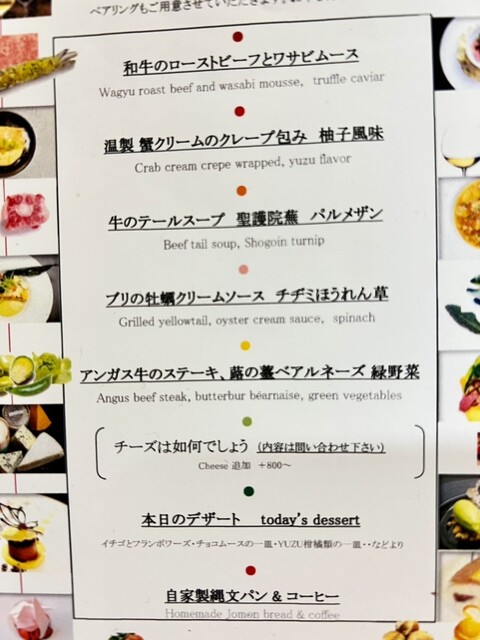 ペアリングもご用意させていただきます。
和牛のローストビーフとワサビムース
Wagyu roast beef and wasabi mousse, truffle caviar
温製 蟹クリームのクレープ包み 柚子風味
Crab cream crepe wrapped, yuzu flavor
牛のテールスープ 聖護院蕪 パルメザン
Beef tail soup, Shogoin turnip
ブリの牡蠣クリームソース チヂミほうれん草
Grilled yellowtail, oyster cream sauce, spinach
アンガス牛のステーキ、蕗の薹ベアルネーズ 緑野菜
Angus beef steak, butterbur béarnaise, green vegetables
チーズは如何でしょう (内容は問い合わせ下さい)
Cheese 追加 +800~
本日のデザート today's dessert
イチゴとフランボワーズ・チョコムースの一皿・YUZU柑橘類の一皿・・などより
自家製縄文パン & コーヒー
Homemade Jomen bread & coffee